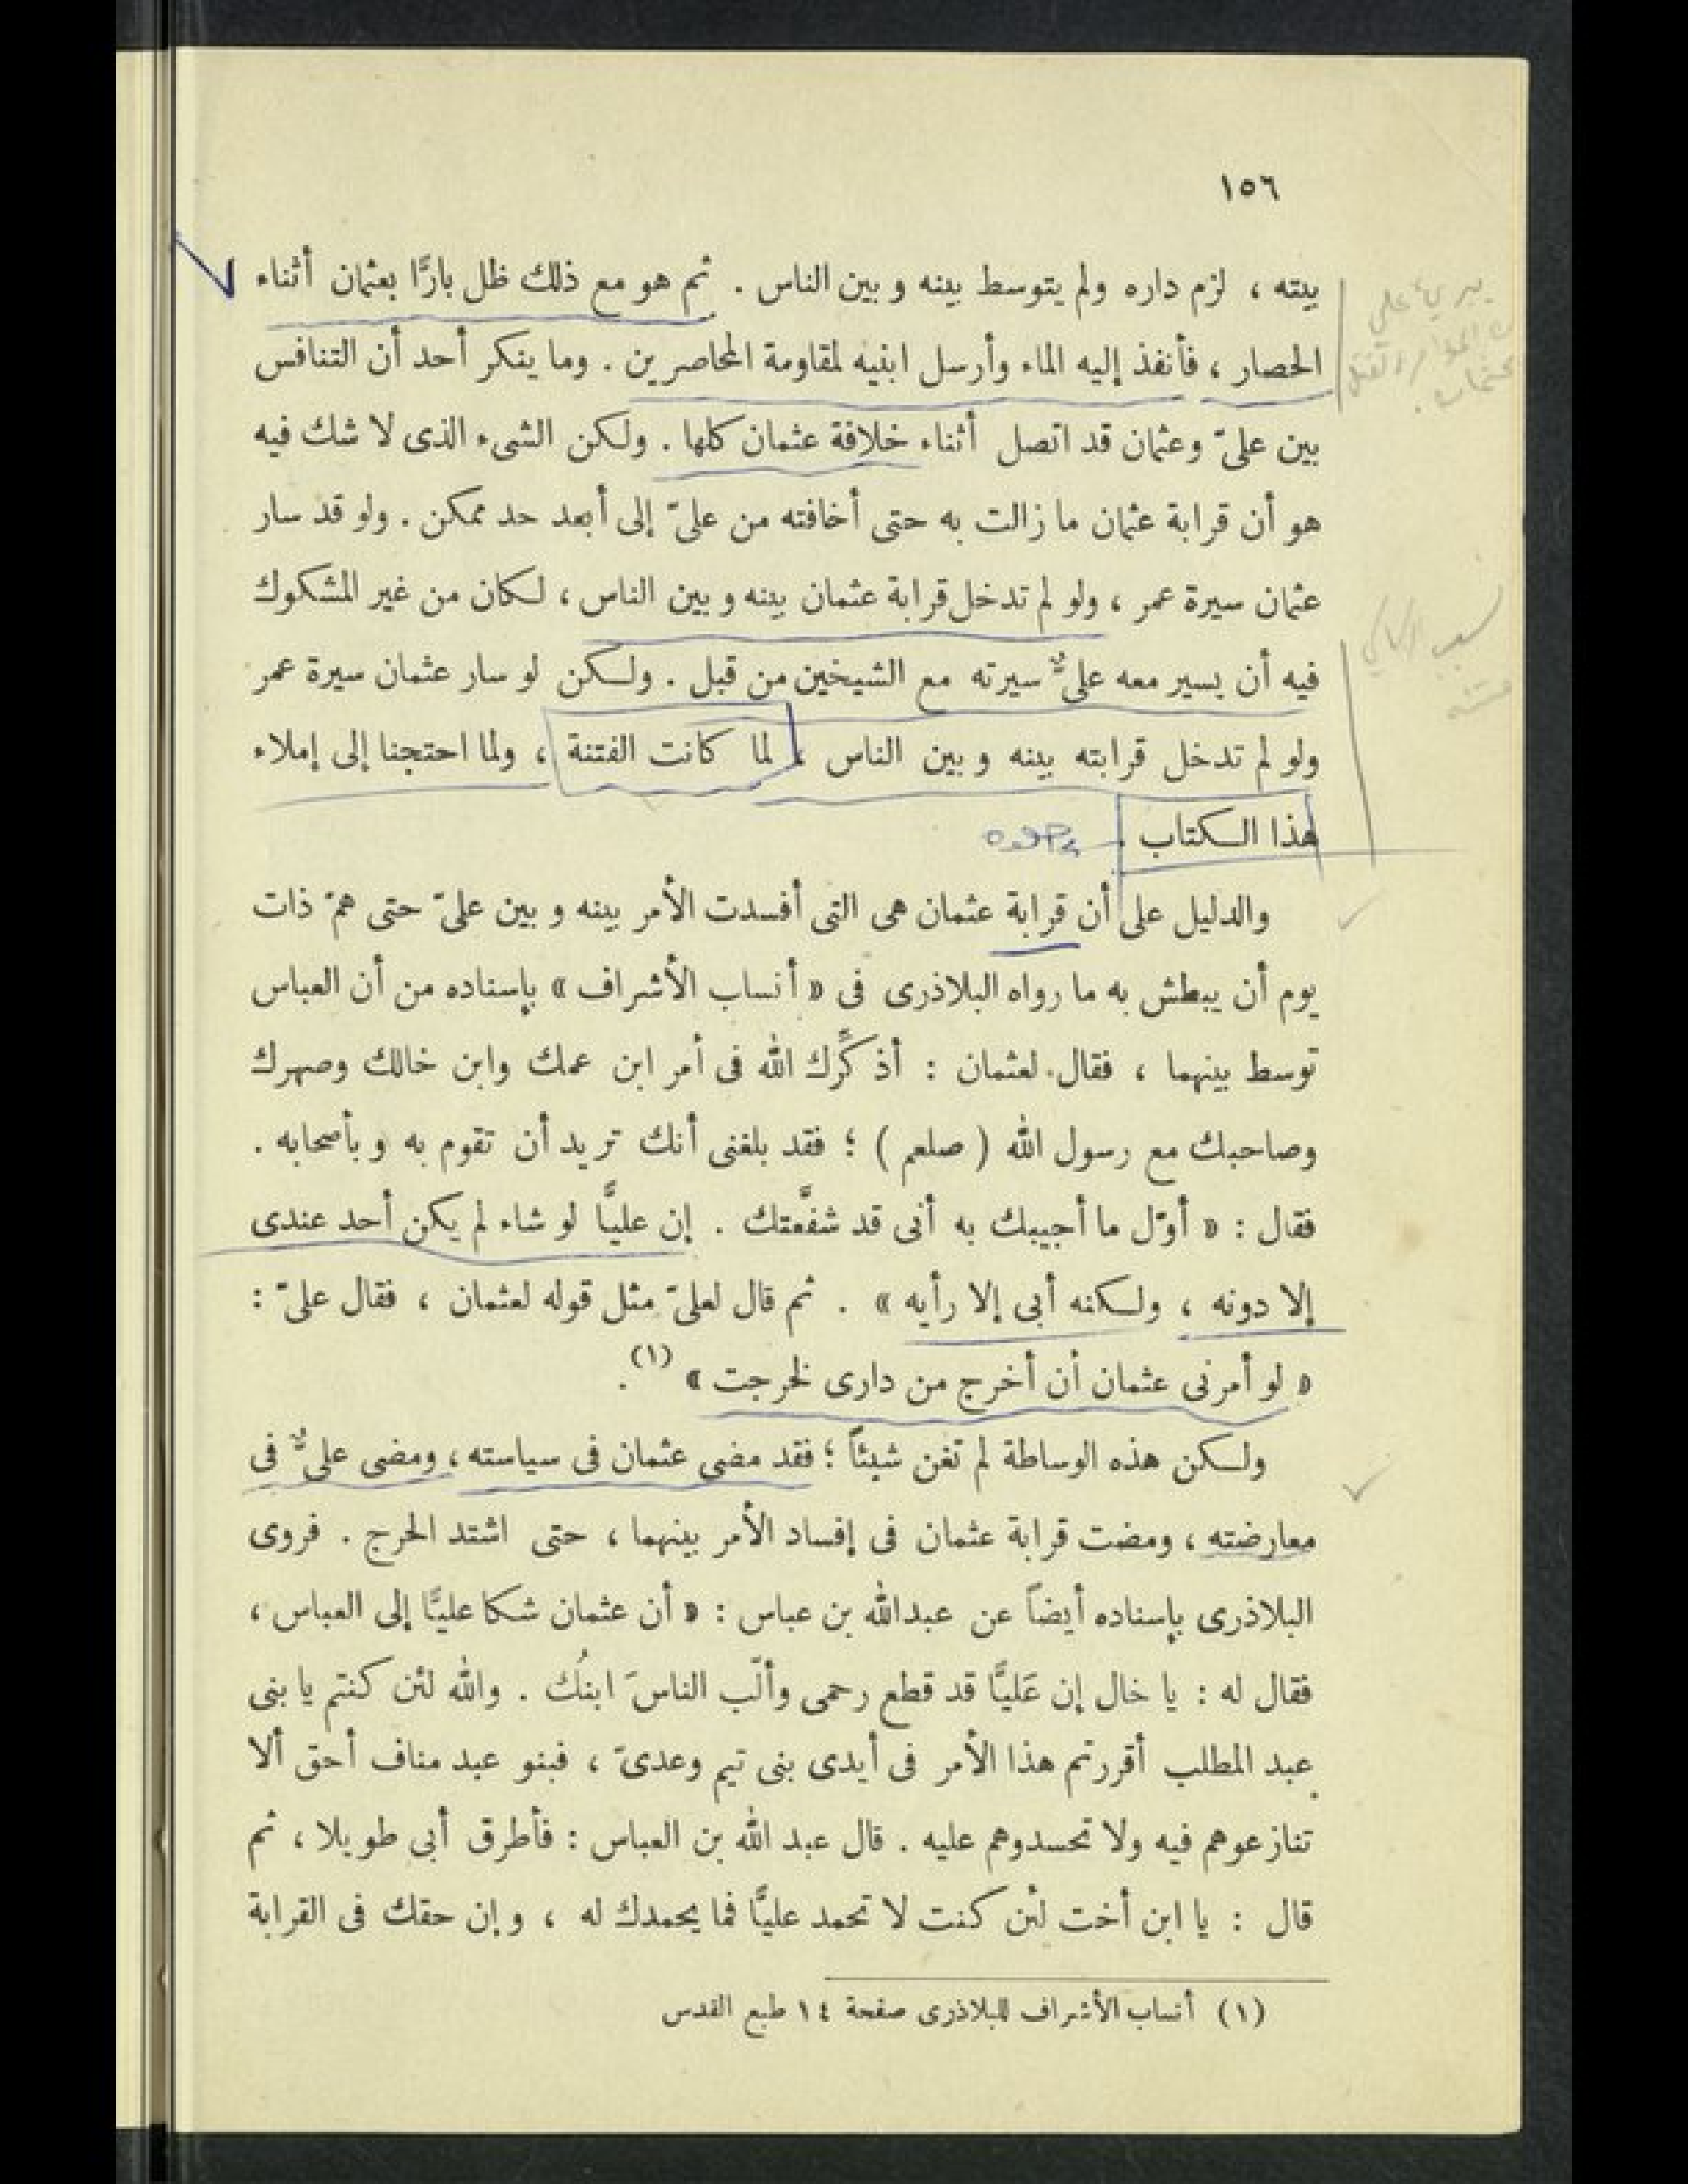 ١٥٦
بيته ، لزم داره ولم يتوسط بينه وبين الناس . ثم هو مع ذلك ظل بارًّا بعثمان أثناء
الحصار ، فأنفذ إليه الماء وأرسل ابنيه لمقاومة المحاصرين . وما ينكر أحد أن التنافس
بين علىّ وعثمان قد اتصل أثناء خلافة عثمان كلها . ولكن الشىء الذى لا شك فيه
هو أن قرابة عثمان ما زالت به حتى أخافته من علىّ إلى أبعد حد ممكن . ولو قد سار
عثمان سيرة عمر ، ولو لم تدخل قرابة عثمان بينه وبين الناس ، لكان من غير المشكوك
فيه أن يسير معه علىٌّ سيرته مع الشيخين من قبل . ولكن لو سار عثمان سيرة عمر
ولو لم تدخل قرابته بينه وبين الناس ، لما كانت الفتنة ، ولما احتجنا إلى إملاء
هذا الكتاب .
والدليل على أن قرابة عثمان هى التى أفسدت الأمر بينه وبين علىّ حتى همّ ذات
يوم أن يبطش به ما رواه البلاذرى فى « أنساب الأشراف » بإسناده من أن العباس
توسط بينهما ، فقال لعثمان : أذكِّرك الله فى أمر ابن عمك وابن خالك وصهرك
وصاحبك مع رسول الله ( صلعم ) ؛ فقد بلغنى أنك تريد أن تقوم به وبأصحابه .
فقال : « أوّل ما أجيبك به أنى قد شفَّعتك . إن عليًّا لو شاء لم يكن أحد عندى
إلا دونه ، ولكنه أبى إلا رأيه » . ثم قال لعلىّ مثل قوله لعثمان ، فقال علىّ :
« لو أمرنى عثمان أن أخرج من دارى لخرجت » (١) .
ولكن هذه الوساطة لم تغن شيئاً ؛ فقد مضى عثمان فى سياسته ، ومضى علىٌّ فى
معارضته ، ومضت قرابة عثمان فى إفساد الأمر بينهما ، حتى اشتد الحرج . فروى
البلاذرى بإسناده أيضاً عن عبدالله بن عباس : « أن عثمان شكا عليًّا إلى العباس ،
فقال له : يا خال إن عَليًّا قد قطع رحمى وألّب الناسَ ابنُك . والله لئن كنتم يا بنى
عبد المطلب أقررتم هذا الأمر فى أيدى بنى تيم وعدىّ ، فبنو عبد مناف أحق ألا
تنازعوهم فيه ولا تحسدوهم عليه . قال عبد الله بن العباس : فأطرق أبى طويلا ، ثم
قال : يا ابن أخت لئن كنت لا تحمد عليًّا فما يحمدك له ، وإن حقك فى القرابة
(١) أنساب الأشراف للبلاذرى صفحة ١٤ طبع القدس